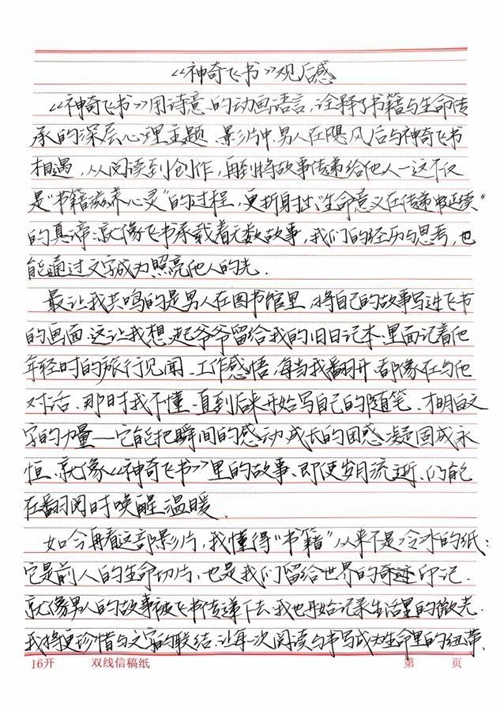 《神奇飞书》观后感
《神奇飞书》用诗意的动画语言，诠释了书籍与生命传
承的深层心理主题。影片中，男人在飓风后与神奇飞书
相遇，从阅读到创作，再到将故事传递给他人—这不仅
是“书籍滋养心灵”的过程，更折射出“生命意义在传递中延续”
的真谛：就像飞书承载着无数故事，我们的经历与思考，也
能通过文字成为照亮他人的光。
最让我共鸣的是男人在图书馆里，将自己的故事写进飞书
的画面。这让我想起爷爷留给我的旧日记本：里面记着他
年轻时的旅行见闻、工作感悟，每当我翻开，都像在与他
对话。那时我不懂，直到后来开始写自己的随笔，才明白文
字的力量—它能把瞬间的感动、成长的困惑，凝固成永
恒。就像《神奇飞书》里的故事，即使岁月流逝，仍能
在翻阅时唤醒温暖。
如今再看这部影片，我懂得“书籍”从来不是冷冰的纸：
它是前人的生命切片，也是我们留给世界的奇迹印记。
就像男人的故事被飞书传递下去，我也开始记录生活里的微光。
我将更珍惜与文字的联结，让每次阅读与书写成为生命里的纽带。
16开 双线信稿纸 第 页